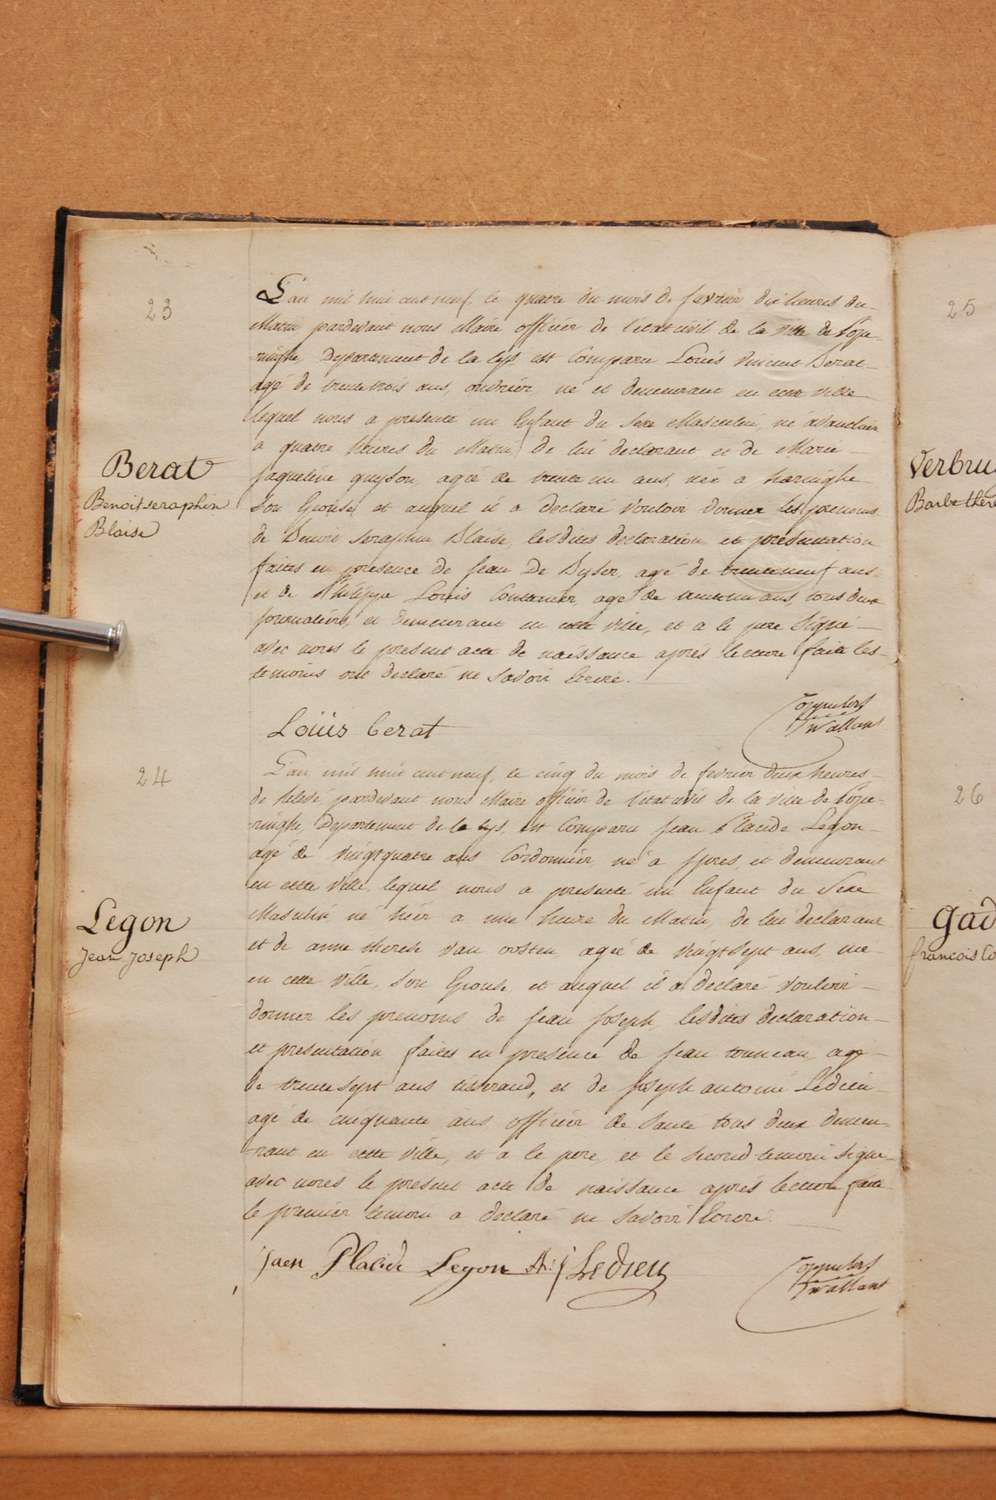 23
Berat
Benoit seraphin
Blaise
L'an mil huit cent neuf, le quatre du mois de fevrier dix heures du
Matin pardevant nous Maire officier de l'état civil de la ville de Pope-
ringhe, Departement de la Lys, est Comparu Louis Vincent Berat
agé de trente trois ans, ouvrier, né et demeurant en cette ville
lequel nous a présenté un Enfant du Sexe Masculin, né
a quatre heures du Matin, de lui declarant et de Marie
Jaqueline quyson, agée de trente un ans, née a haringhe
Son Epouse, et auquel il a Declaré Vouloir donner les prenoms
de Benoit Seraphin Blaise, lesdites declaration et présentation
faites en présence de Jean De Dyser, agé de trente neuf ans
et de Philippe Louis agé de ans, tous deux
journaliers, et demeurant en cette ville, et a le pere Signé
avec nous le présent acte de naissance après lecture faite les
temoins ont declaré ne Savoir Ecrire.
Loüis berat
24
Legon
Jean Joseph
L'an mil huit cent neuf, le cinq du mois de fevrier deux heures
de relevé pardevant nous Maire officier de l'état civil de la ville de Pope-
ringhe, Departement de la Lys, est Comparu Jean Placide Legon
agé de vingt quatre ans Cordonnier né a Ypres et demeurant
en cette Ville, lequel nous a presenté un Enfant du Sexe
Masculin né hier a une heure du Matin, de lui declarant
et de anne therese van oosten agée de vingt Sept ans, née
en cette Ville, Son Epouse, et auquel il a declaré Vouloir
donner les prenoms de Jean Joseph, lesdites declaration
et presentation faites en présence de Jean tonneau, agé
de trente sept ans, et de Joseph antoine Ledieu
agé de cinquante ans officier de Santé tous deux demeu-
rant en cette Ville, et a le pere, et le Second temoin Signé
avec nous le présent acte de naissance après lecture faite
le premier temoin a declaré ne Savoir Ecrire.
Jaen Placide Legon
Ledieu
25
Verbru
Barbe there
26
Gad
francois